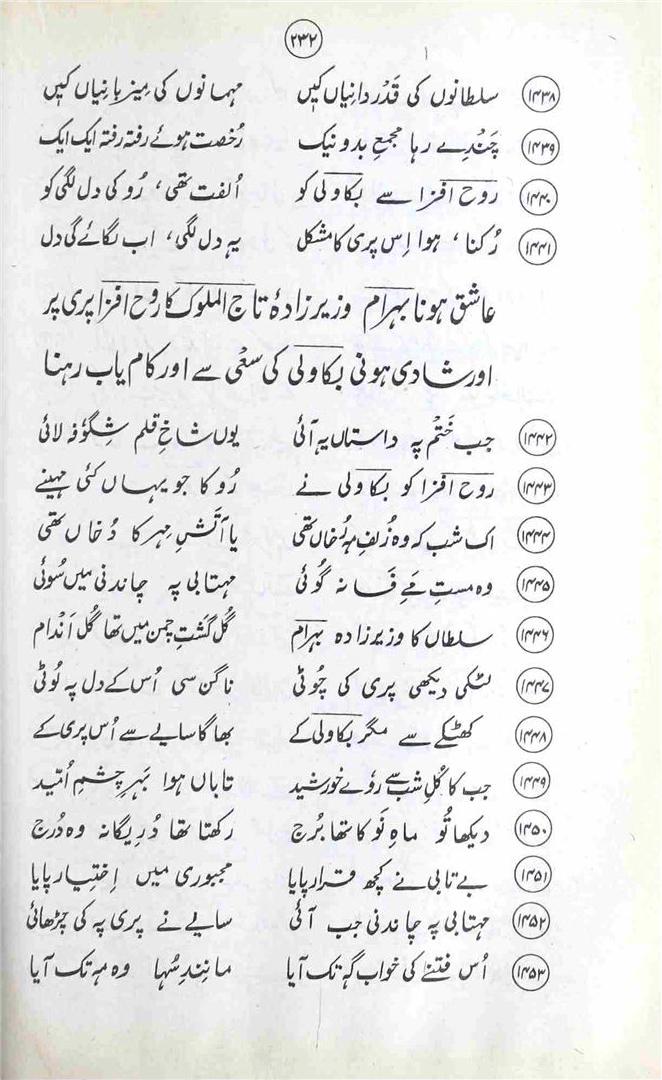 ۲۳۲
۱۴۳۸ سلطانوں کی قَدْر دانیاں کیں مہمانوں کی میزبانیاں کیں
۱۴۳۹ چَنْدے رہا مجمعِ بد و نیک رُخصت ہوئے رفتہ رفتہ ایک ایک
۱۴۴۰ روح افزا سے بکاولی کو اُلفت تھی، رُو کی دل لگی کو
۱۴۴۱ رُکنا، ہوا اِس پری کا مشکل یہ دل لگی، اب لگائے گی دل
عاشق ہونا بہرام وزیر زادۂ تاج الملوک کا روح افزا پری پر
اور شادی ہونی بکاولی کی سَعْی سے اور کام یاب رہنا
۱۴۴۲ جب خَتْم پہ داستاں یہ آئی یوں شاخِ قلم شِگُوفہ لائی
۱۴۴۳ روح افزا کو بکاولی نے رُوکا جو یہاں کئی مہینے
۱۴۴۴ اک شب کہ وہ زُلفِ مہ رُخاں تھی یا آتَشِ مہر کا دُخاں تھی
۱۴۴۵ وہ مستِ مَےِ فسانہ گوئی مہتابی پہ چاندنی میں سُوئی
۱۴۴۶ سلطاں کا وزیر زادہ بہرام گُل گشتِ چمن میں تھا گُل اَنْدام
۱۴۴۷ لٹکی دیکھی پری کی چُوٹی ناگن سی اُس کے دل پہ لُوٹی
۱۴۴۸ کھٹکے سے مگر بکاولی کے بھاگا سایے سے اُس پری کے
۱۴۴۹ جب کا گُلِ شب سے روۓ خورشید تاباں ہوا بَہرِ چشمِ اُمّید
۱۴۵۰ دیکھا تُو ماہِ نَو کا تھا بُرج رکھتا تھا دُرِ یگانہ وہ دُرج
۱۴۵۱ بے تابی نے کچھ قرار پایا مجبوری میں اِختِیار پایا
۱۴۵۲ مہتابی پہ چاندنی جب آئی سایے نے پری پہ کی چڑھائی
۱۴۵۳ اُس فتنے کی خواب گہ تک آیا مانندِ سُہا وہ مہ تک آیا